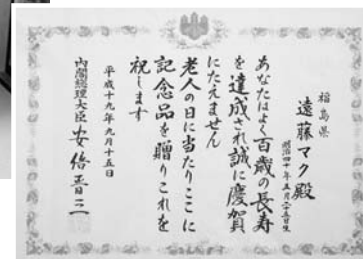 福島県
遠藤マク殿
明治四十年五月二十五日生
あなたはよく百歳の長寿
を達成され誠に慶賀
にたえません
老人の日に当たりここに
記念品を贈りこれを
祝します
平成十九年九月十五日
内閣総理大臣 安倍晋三